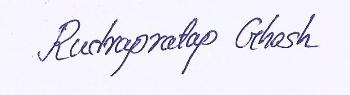 Rudrapratap Ghosh